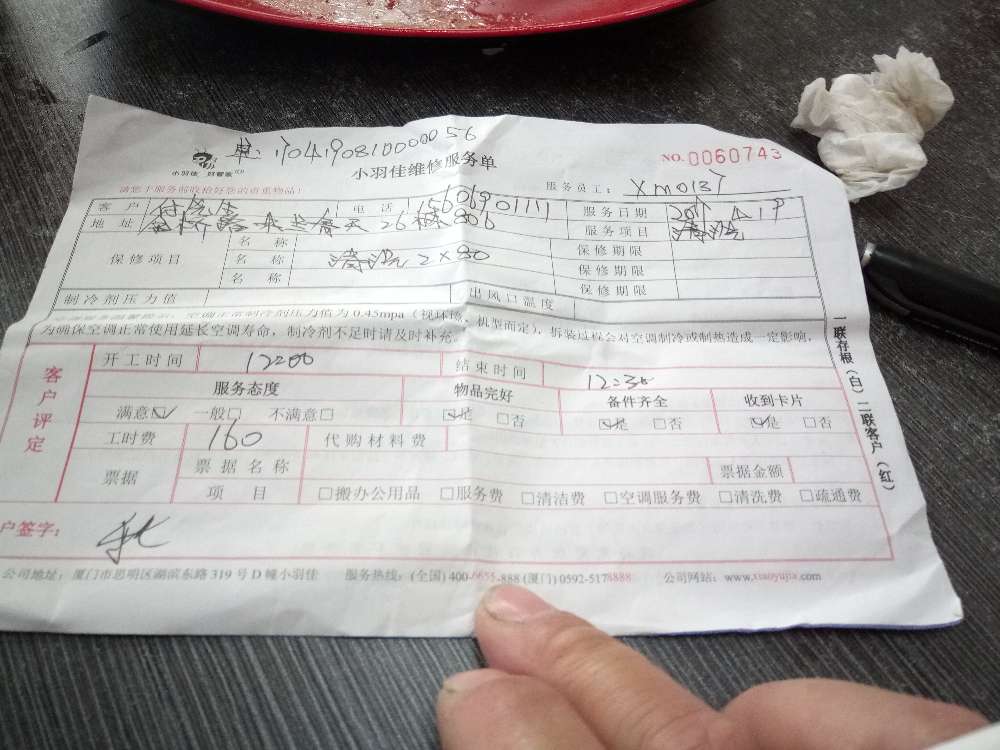 单: 1704190810000056
小羽佳 好管家
小羽佳维修服务单
NO.0060743
请您于服务前收检好您的贵重物品!
服务员工: XM0137
客户 电话 15606901111 服务日期
地址 26栋806 服务项目 清洗
保修项目 名称 保修期限
名称 清洗2×80 保修期限
名称 保修期限
制冷剂压力值 出风口温度
空调正常制冷剂压力值为0.45mpa(视环境,机型而定),拆装过程会对空调制冷或制热造成一定影响,
为确保空调正常使用延长空调寿命,制冷剂不足时请及时补充。
客户评定
开工时间 12:00 结束时间 12:30
服务态度 物品完好 备件齐全 收到卡片
满意☑ 一般□ 不满意□ ☑是 □否 ☑是 □否 ☑是 □否
工时费 160 代购材料费
票据 票据名称 票据金额
项目 □搬办公用品 □服务费 □清洁费 □空调服务费 □清洗费 □疏通费
户签字:
公司地址: 厦门市思明区湖滨东路319号D幢小羽佳 服务热线: (全国) 400-6655-888 (厦门) 0592-5178888 公司网站: www.xiaoyujia.com
一联存根(白) 二联客户(红)